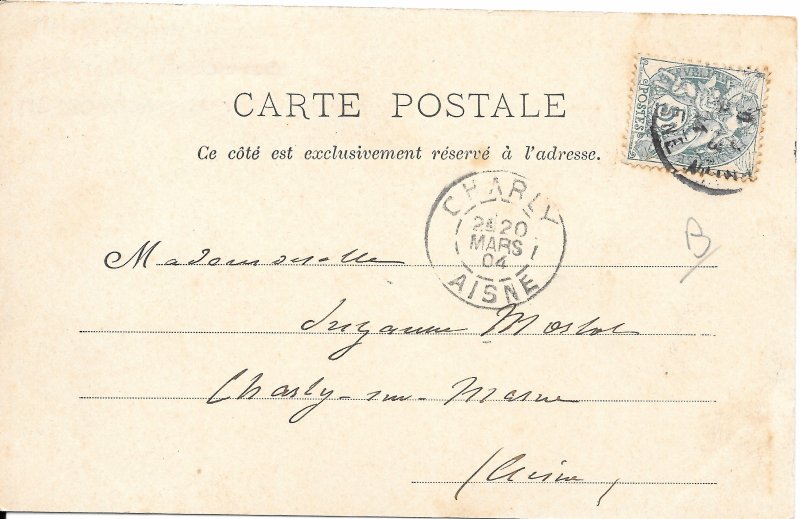 CARTE POSTALE
Ce côté est exclusivement réservé à l'adresse.
POSTES
5
CHARLY
20
MARS
04
AISNE
B
Mademoiselle
Suzanne
Charly-sur-Marne
(Aisne)